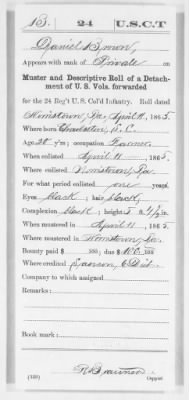 B. 24 U.S.C.T
Daniel Brown,
Appears with rank of Private on
Muster and Descriptive Roll of a Detach-
ment of U. S. Vols. forwarded
for the 24 Reg't U. S. Col'd Infantry. Roll dated
April 11, 1865.
Where born Charleston, S.C.
Age 20 y'rs; occupation Farmer
When enlisted April 11, 1865.
Where enlisted
For what period enlisted one years.
Eyes black; hair black;
Complexion black; height 5 ft. in.
When mustered in April 11, 1865.
Where mustered in
Bounty paid $ 100; due $ 100
Where credited 6 Dist.
Company to which assigned
Remarks:
Book mark:
(339) Copyist.